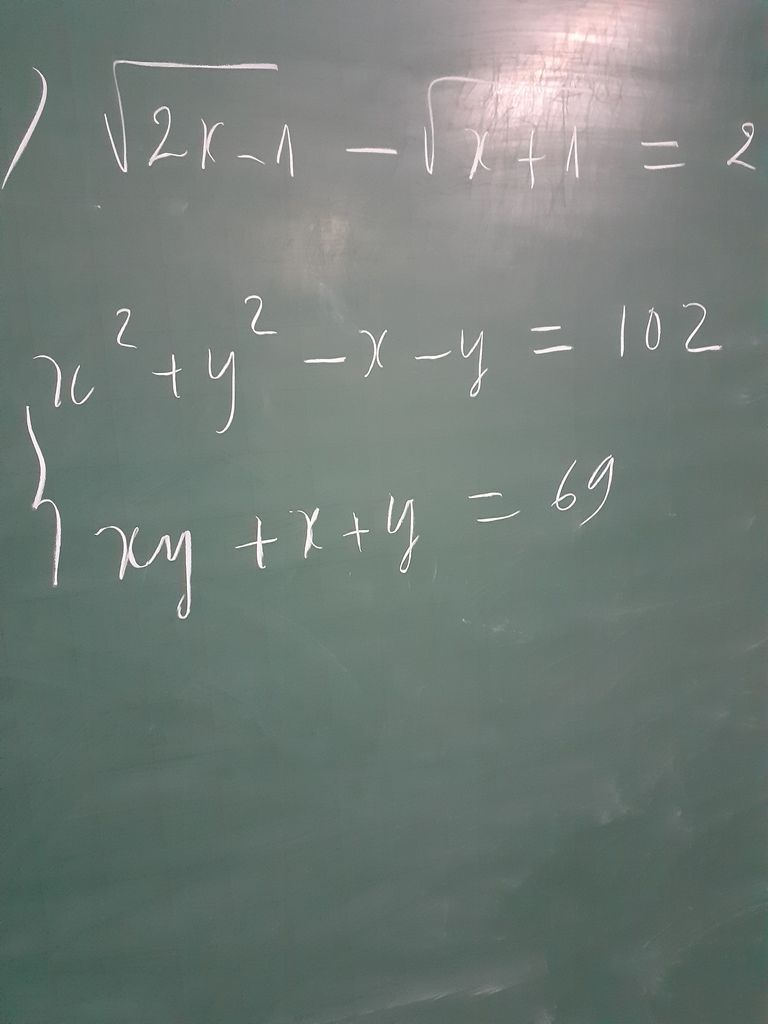 ) √(2x-1) - √(x+1) = 2
x² + y² - x - y = 102
{ xy + x + y = 69